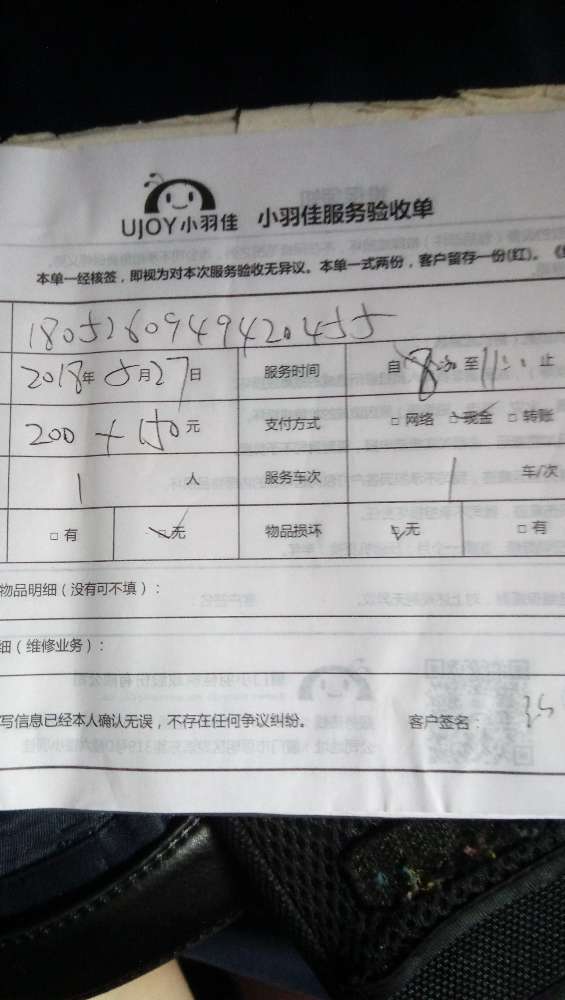 UJOY小羽佳 小羽佳服务验收单
本单一经核签，即视为对本次服务验收无异议。本单一式两份，客户留存一份(红)。《
1805260949420455
2018年5月27日 服务时间 自8:30至11:00止
200+150元 支付方式 □ 网络 □ 现金 □ 转账
1人 服务车次 1车/次
□ 有 □ 无 物品损坏 □ 无 □ 有
物品明细（没有可不填）：
细（维修业务）：
写信息已经本人确认无误，不存在任何争议纠纷。 客户签名：